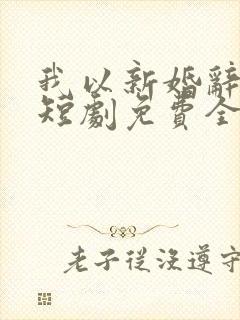 我以新婚辭
短劇免費全
老子從沒遵守